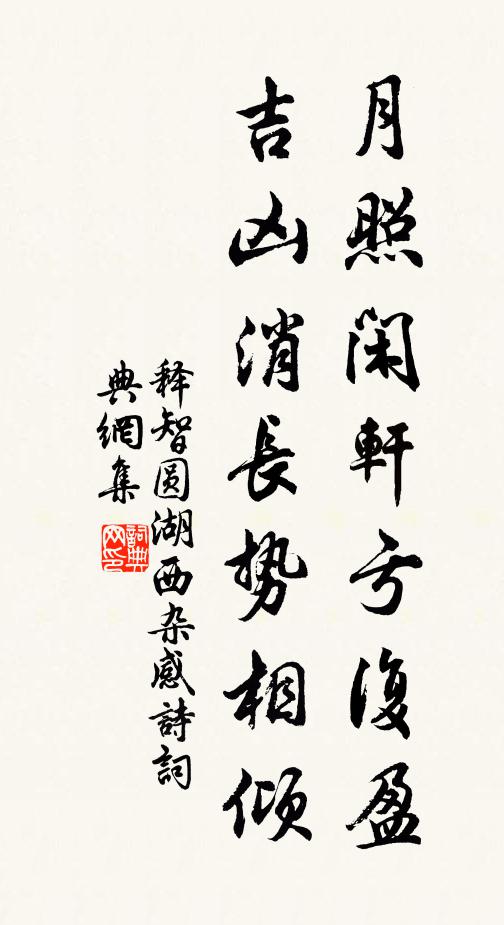 月照閑軒亏復盈
吉凶消長势相倾
释智圆湖西杂感詩詞
典網集
詞典网印